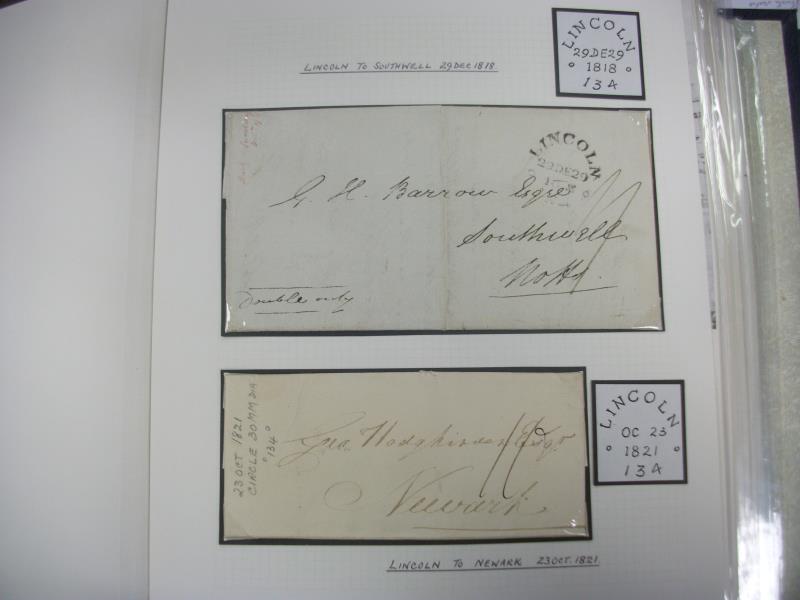 LINCOLN TO SOUTHWELL 29 DEC 1818.
LINCOLN
29DE29
1818
134
LINCOLN
29DE29
G. H. Barrow Esqre
Southwell
Notts.
Double only
23 OCT 1821
CIRCLE 30MM DIA
"134"
Geo. Hodgkinson Esqr
Newark
LINCOLN
OC 23
1821
134
LINCOLN TO NEWARK 23 OCT. 1821.